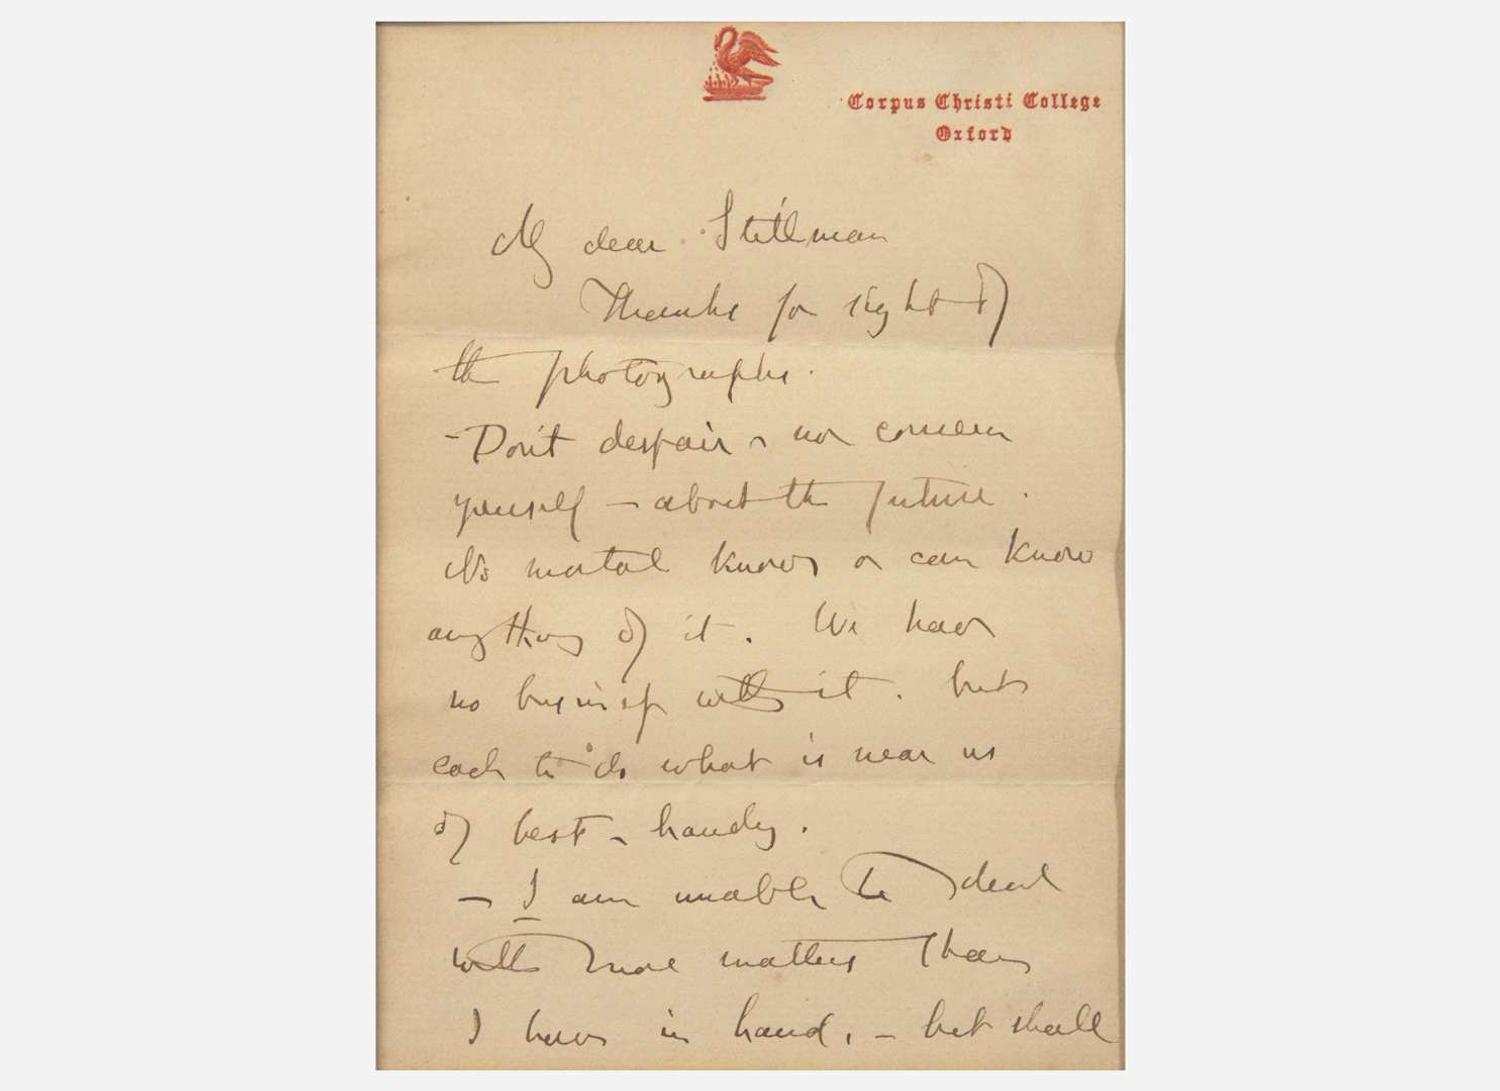 Corpus Christi College
Oxford
My dear Stillman
Thanks for sight of
the photographs.
- Don't despair - nor concern
yourself - about the future.
No mortal knows or can know
anything of it. We have
no business with it. but
each to do what is near us
& best - handy.
- I am unable to deal
with more matters than
I have in hand, - but shall